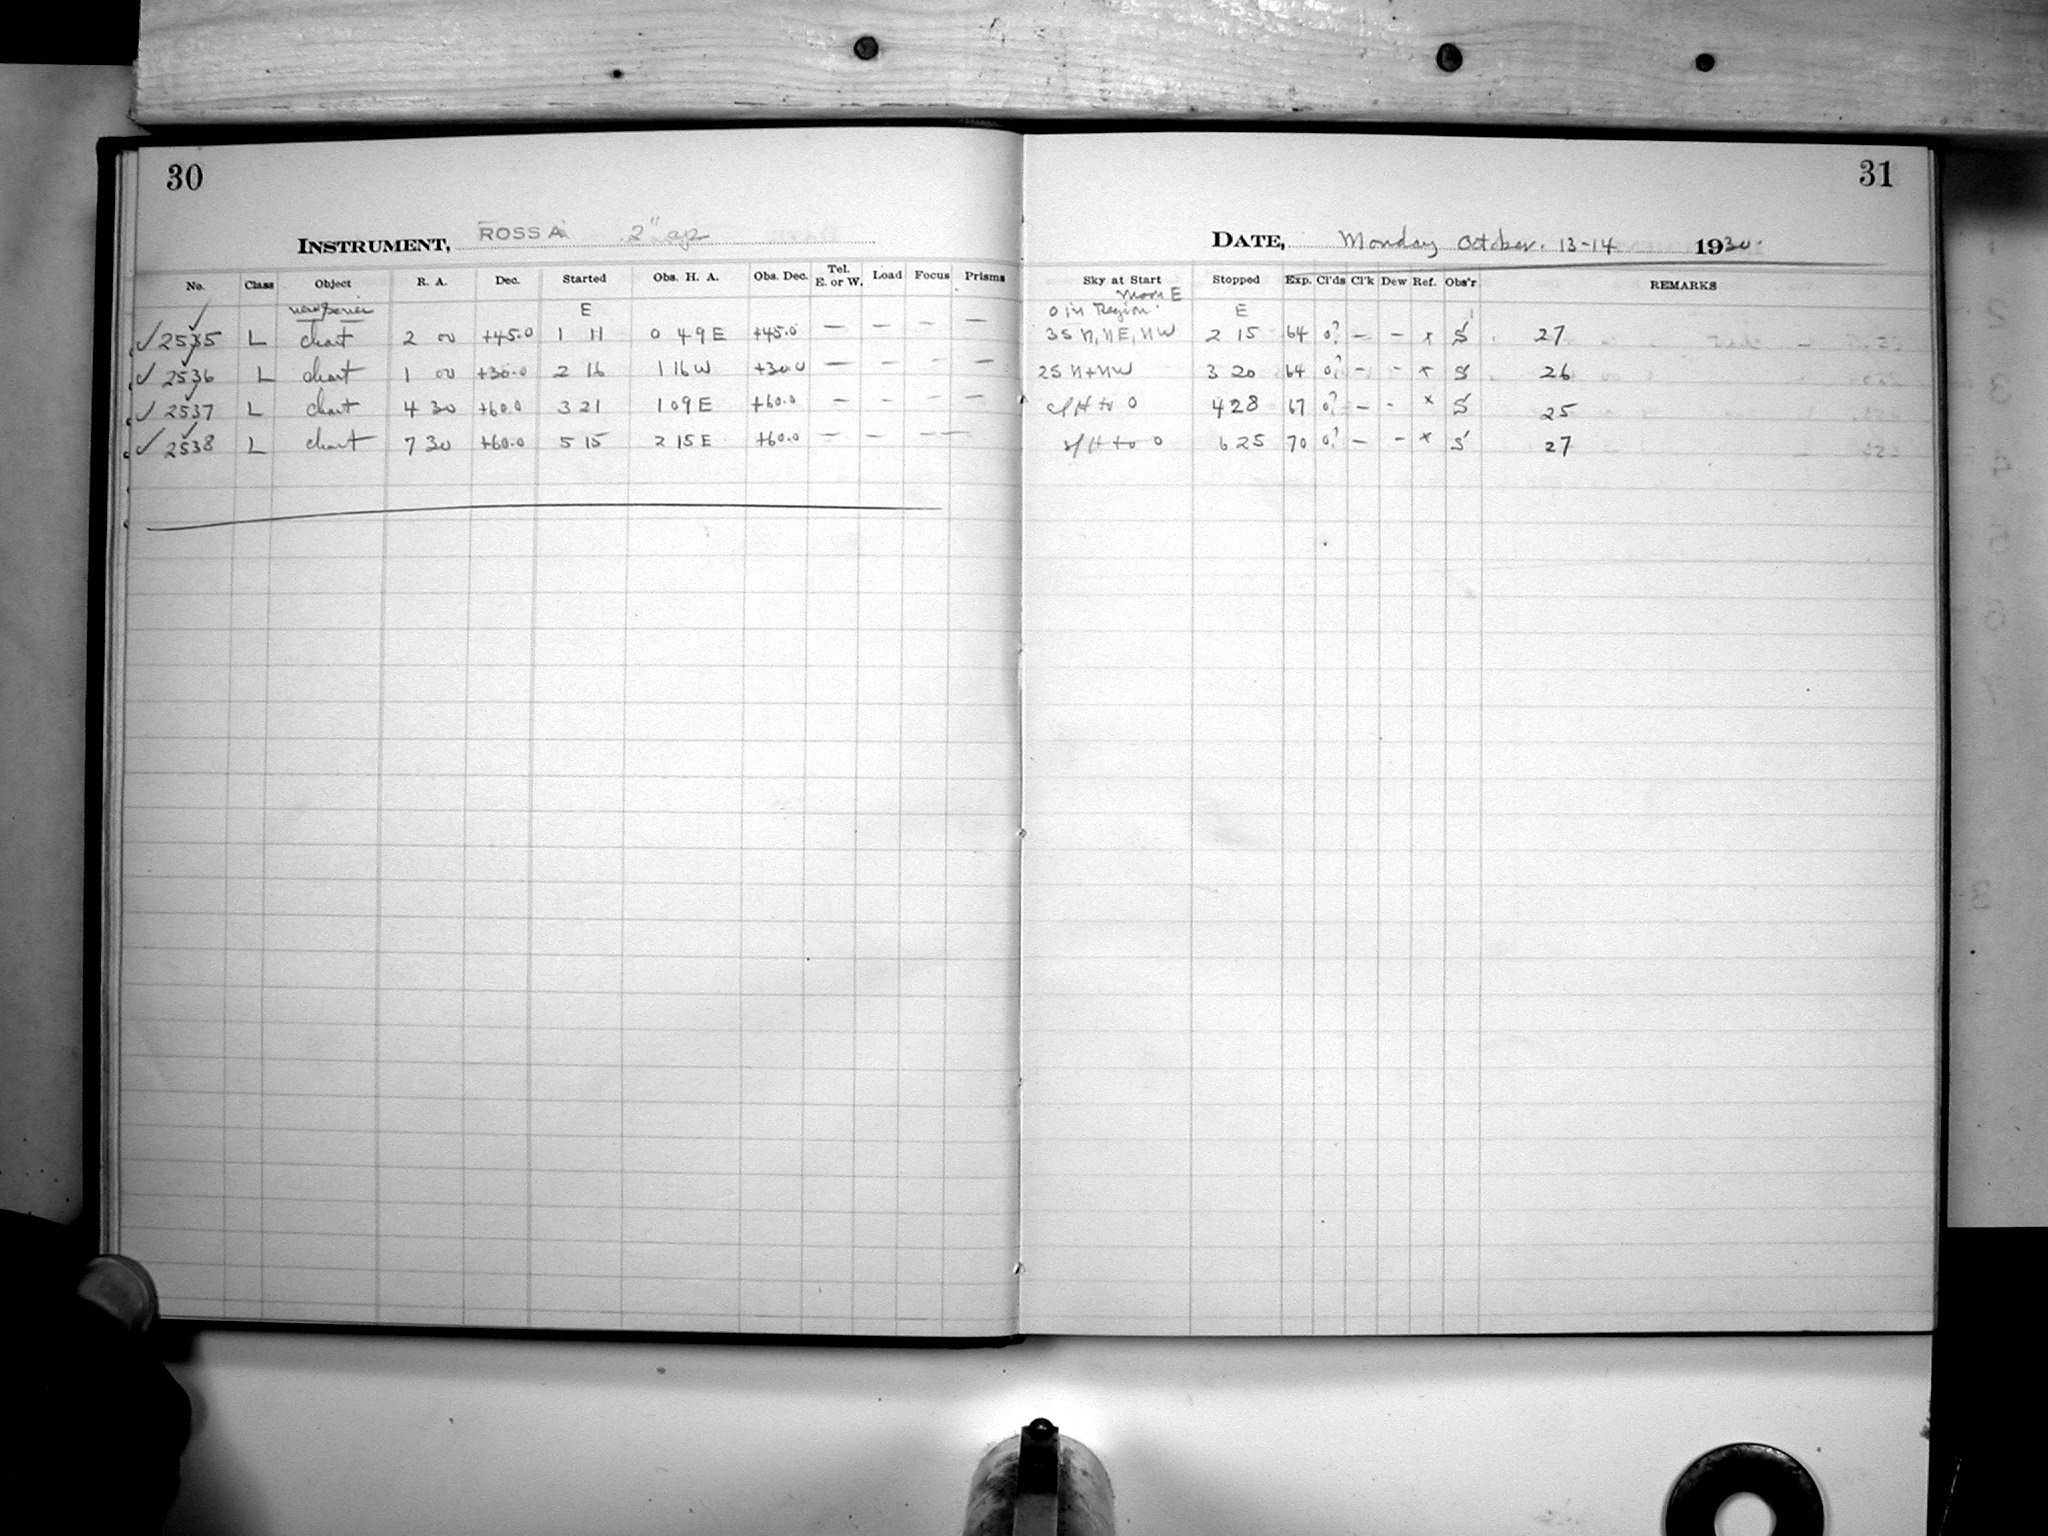 30
INSTRUMENT, ROSS A 2" ap
No. Class Object R. A. Dec. Started Obs. H. A. Obs. Dec. Tel. E. or W. Load Focus Prisms
new series E
✓ 2535 L chart 2 00 +45.0 1 11 0 49 E +45.0 — — — —
✓ 2536 L chart 1 00 +30.0 2 16 1 16 W +30.0 — — — —
✓ 2537 L chart 4 30 +60.0 3 21 1 09 E +60.0 — — — —
✓ 2538 L chart 7 30 +60.0 5 15 2 15 E +60.0 — — — —
31
DATE, Monday October. 13-14 1930.
Sky at Start Stopped Exp. Cl'ds Cl'k Dew Ref. Obs'r REMARKS
Moon E
0 in Region E
3S N, NE, NW 2 15 64 0? — — x S 27
2S N+NW 3 20 64 0? — - x S 26
S/H to 0 4 28 67 0? — - x S 25
S/H to 0 6 25 70 0? — — x S 27